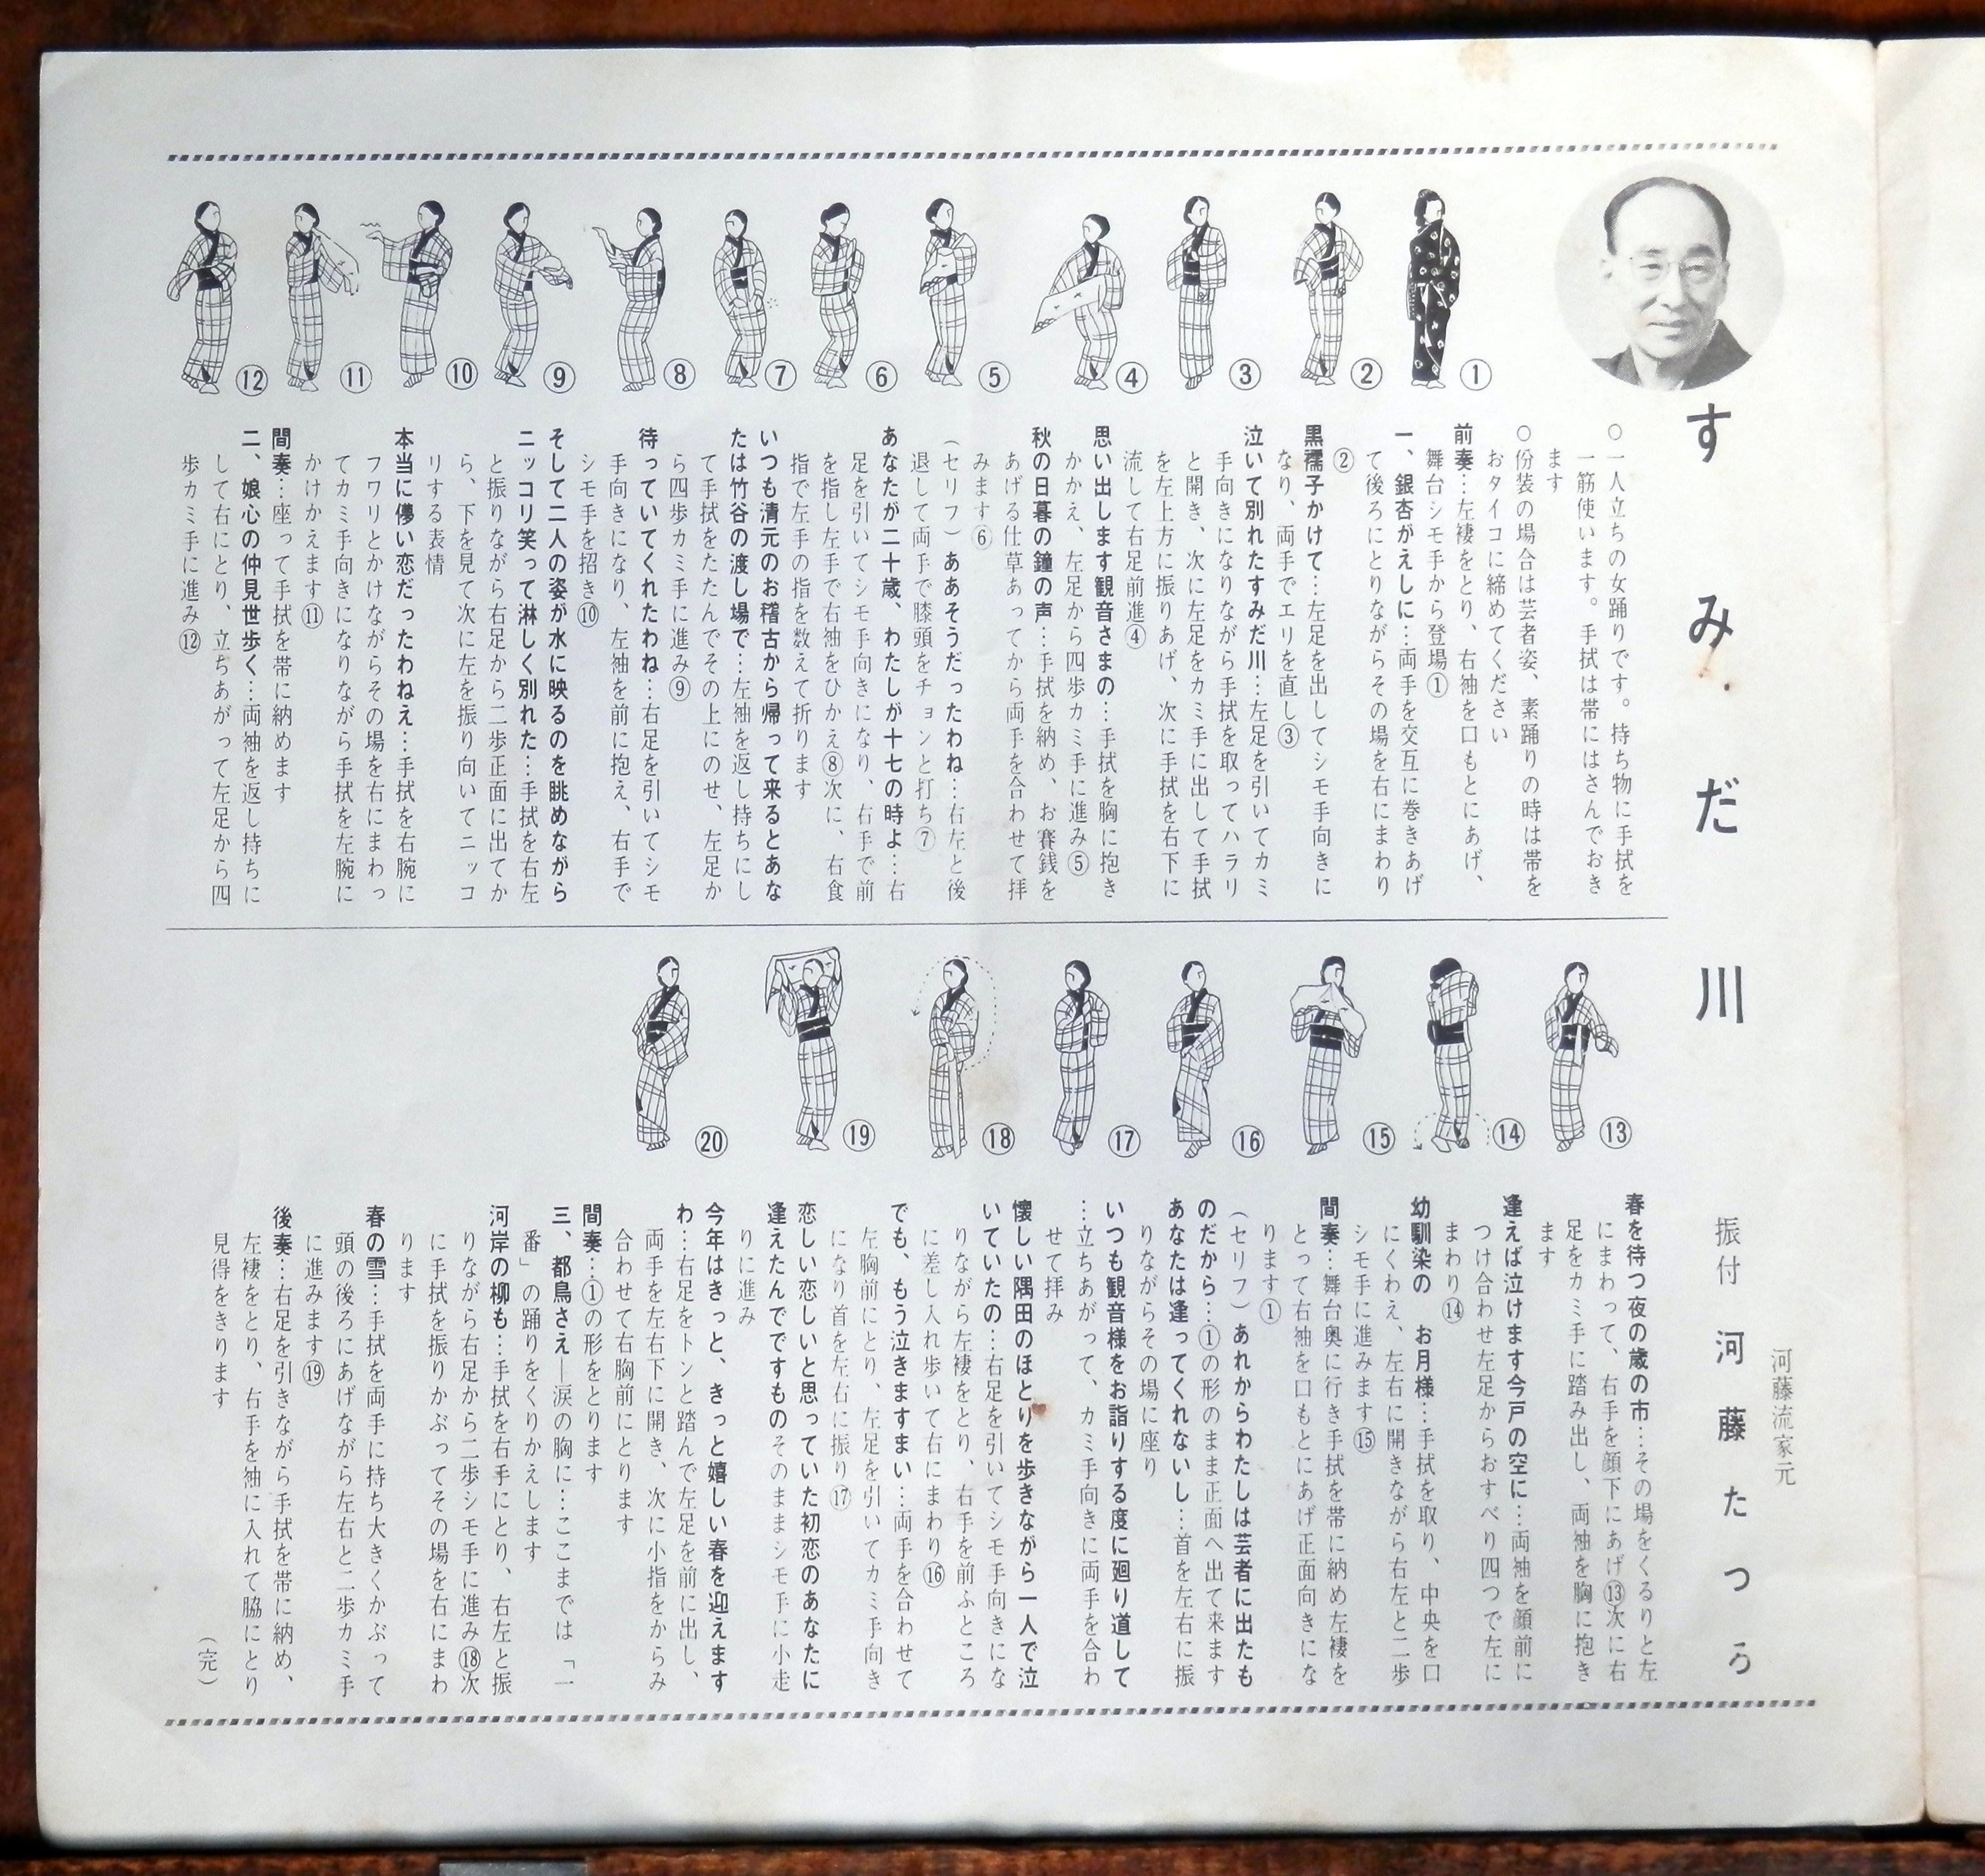 すみだ川
河藤流家元
振付 河藤たつろ
○一人立ちの女踊りです。持ち物に手拭を
一筋使います。手拭は帯にはさんでおき
ます
○份装の場合は芸者姿、素踊りの時は帯を
おタイコに締めてください
前奏…左褄をとり、右袖を口もとにあげ、
舞台シモ手から登場①
一、銀杏がえしに…両手を交互に巻きあげ
て後ろにとりながらその場を右にまわり
②
黒襦子かけて…左足を出してシモ手向きに
なり、両手でエリを直し③
泣いて別れたすみだ川…左足を引いてカミ
手向きになりながら手拭を取ってハラリ
と開き、次に左足をカミ手に出して手拭
を左上方に振りあげ、次に手拭を右下に
流して右足前進④
思い出します観音さまの…手拭を胸に抱き
かかえ、左足から四歩カミ手に進み⑤
秋の日暮の鐘の声…手拭を納め、お賽銭を
あげる仕草あってから両手を合わせて拝
みます⑥
(セリフ)ああそうだったわね…右左と後
退して両手で膝頭をチョンと打ち⑦
あなたが二十歳、わたしが十七の時よ…右
足を引いてシモ手向きになり、右手で前
を指し左手で右袖をひかえ⑧次に、右食
指で左手の指を数えて折ります
いつも清元のお稽古から帰って来るとあな
たは竹谷の渡し場で…左袖を返し持ちにし
て手拭をたたんでその上にのせ、左足か
ら四歩カミ手に進み⑨
待っていてくれたわね…右足を引いてシモ
手向きになり、左袖を前に抱え、右手で
シモ手を招き⑩
そして二人の姿が水に映るのを眺めながら
ニッコリ笑って淋しく別れた…手拭を右左
と振りながら右足から二歩正面に出てか
ら、下を見て次に左を振り向いてニッコ
リする表情
本当に儚い恋だったわねえ…手拭を右腕に
フワリとかけながらその場を右にまわっ
てカミ手向きになりながら手拭を左腕に
かけかえます⑪
間奏…座って手拭を帯に納めます
二、娘心の仲見世歩く…両袖を返し持ちに
して右にとり、立ちあがって左足から四
歩カミ手に進み⑫
春を待つ夜の歳の市…その場をくるりと左
にまわって、右手を顔下にあげ⑬次に右
足をカミ手に踏み出し、両袖を胸に抱き
ます
逢えば泣けます今戸の空に…両袖を顔前に
つけ合わせ左足からおすべり四つで左に
まわり⑭
幼馴染の お月様…手拭を取り、中央を口
にくわえ、左右に開きながら右左と二歩
シモ手に進みます⑮
間奏…舞台奥に行き手拭を帯に納め左褄を
とって右袖を口もとにあげ正面向きにな
ります①
(セリフ)あれからわたしは芸者に出たも
のだから…①の形のまま正面へ出て来ます
あなたは逢ってくれないし…首を左右に振
りながらその場に座り
いつも観音様をお詣りする度に廻り道して
…立ちあがって、カミ手向きに両手を合わ
せて拝み
懐しい隅田のほとりを歩きながら一人で泣
いていたの…右足を引いてシモ手向きにな
りながら左褄をとり、右手を前ふところ
に差し入れ歩いて右にまわり⑯
でも、もう泣きますまい…両手を合わせて
左胸前にとり、左足を引いてカミ手向き
になり首を左右に振り⑰
恋しい恋しいと思っていた初恋のあなたに
逢えたんでですものそのままシモ手に小走
りに進み
今年はきっと、きっと嬉しい春を迎えます
わ…右足をトンと踏んで左足を前に出し、
両手を左右下に開き、次に小指をからみ
合わせて右胸前にとります
間奏…①の形をとります
三、都鳥さえ―涙の胸に…ここまでは「一
番」の踊りをくりかえします
河岸の柳も…手拭を右手にとり、右左と振
りながら右足から二歩シモ手に進み⑱次
に手拭を振りかぶってその場を右にまわ
ります
春の雪…手拭を両手に持ち大きくかぶって
頭の後ろにあげながら左右と二歩カミ手
に進みます⑲
後奏…右足を引きながら手拭を帯に納め、
左褄をとり、右手を袖に入れて脇にとり
見得をきります
(完)
①
②
③
④
⑤
⑥
⑦
⑧
⑨
⑩
⑪
⑫
⑬
⑭
⑮
⑯
⑰
⑱
⑲
⑳